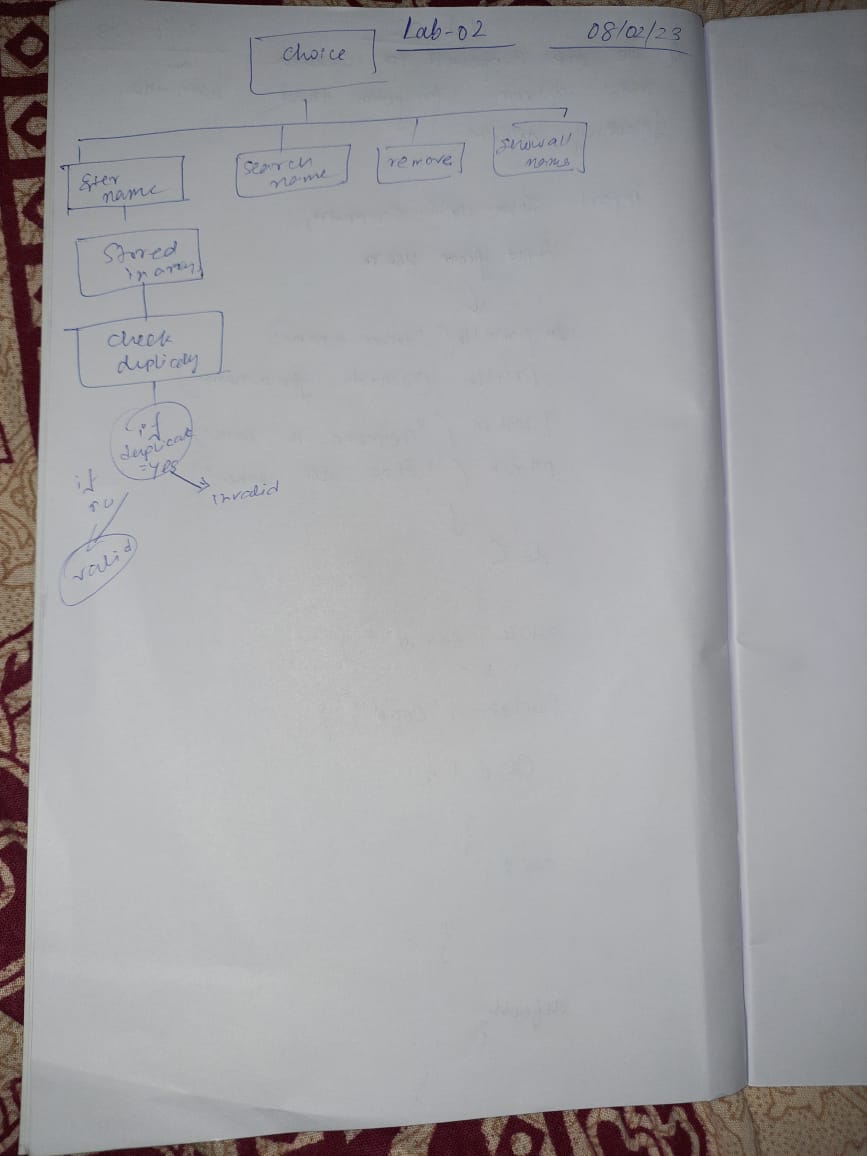 Lab-02
08/02/23
choice
Enter
name
search
name
remove
showall
names
Stored
in array
check
duplicacy
if
duplicate
=yes
if
no
invalid
valid